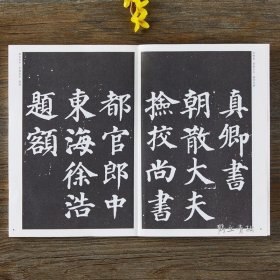 真卿書
朝散大夫
撿挍尚書
都官郎中
東海徐浩
題額